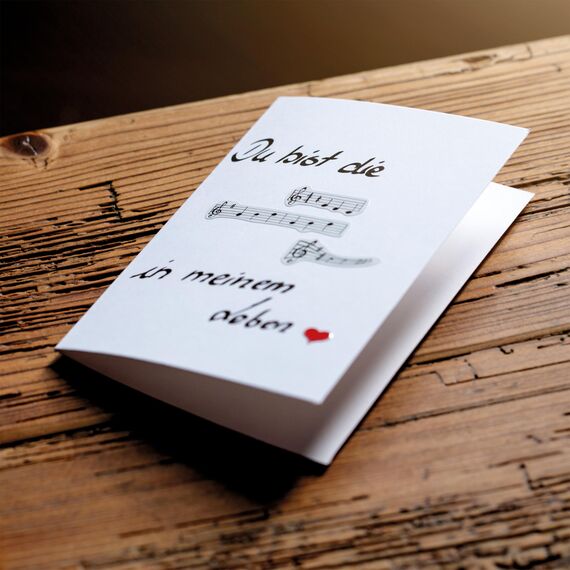 Du bist die
in meinem
Leben